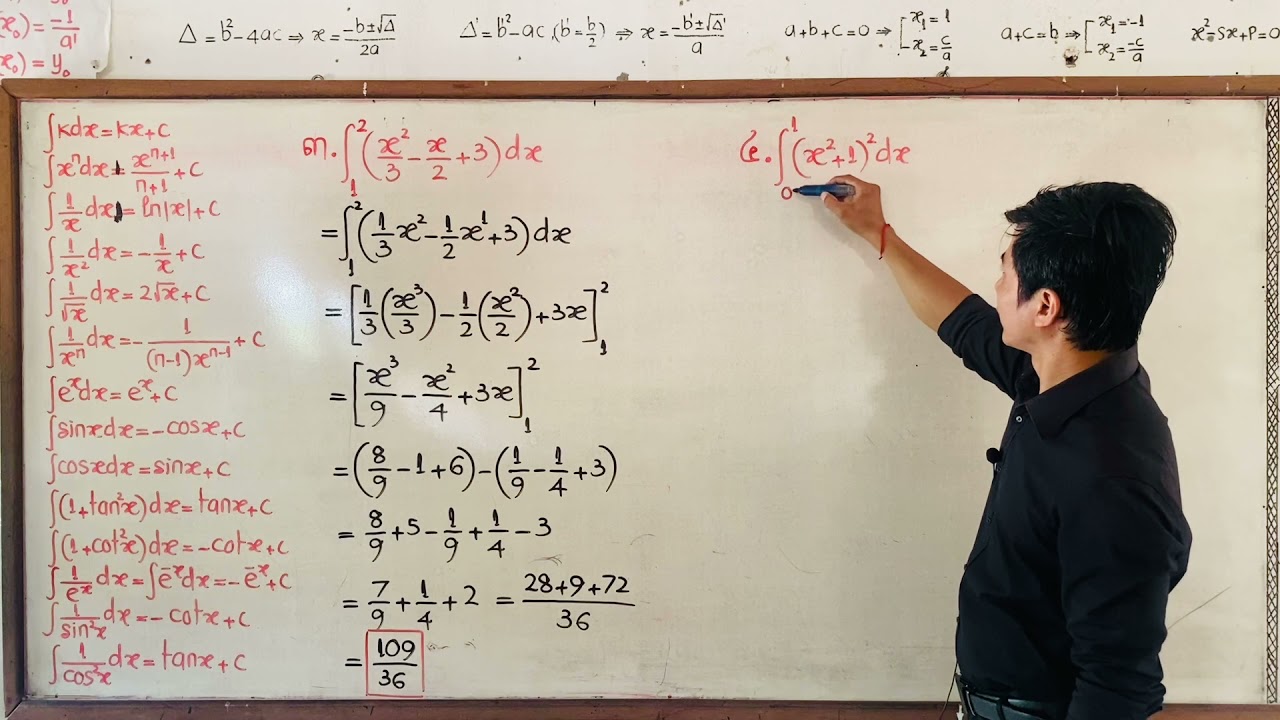 x₀) = -1/a'
x₀) = y₀
Δ = b² - 4ac ⇒ x = (-b±√Δ)/2a
Δ' = b'² - ac, (b' = b/2) ⇒ x = (-b'±√Δ')/a
a+b+c=0 ⇒ [x₁ = 1, x₂ = c/a
a+c=b ⇒ [x₁ = -1, x₂ = -c/a
x² - Sx + P = 0
∫kdx = kx + c
∫xⁿdx = xⁿ⁺¹/(n+1) + c
∫1/x dx = ln|x| + c
∫1/x² dx = -1/x + c
∫1/√x dx = 2√x + c
∫1/xⁿ dx = -1/((n-1)xⁿ⁻¹) + c
∫eˣdx = eˣ + c
∫sinxdx = -cosx + c
∫cosxdx = sinx + c
∫(1+tan²x)dx = tanx + c
∫(1+cot²x)dx = -cotx + c
∫1/eˣ dx = ∫e⁻ˣdx = -e⁻ˣ + c
∫1/sin²x dx = -cotx + c
∫1/cos²x dx = tanx + c
៣. ∫₁² (x²/3 - x/2 + 3) dx
= ∫₁² (1/3 x² - 1/2 x¹ + 3) dx
= [1/3 (x³/3) - 1/2 (x²/2) + 3x]₁²
= [x³/9 - x²/4 + 3x]₁²
= (8/9 - 1 + 6) - (1/9 - 1/4 + 3)
= 8/9 + 5 - 1/9 + 1/4 - 3
= 7/9 + 1/4 + 2 = (28+9+72)/36
= 109/36
៤. ∫₀¹ (x²+1)² dx